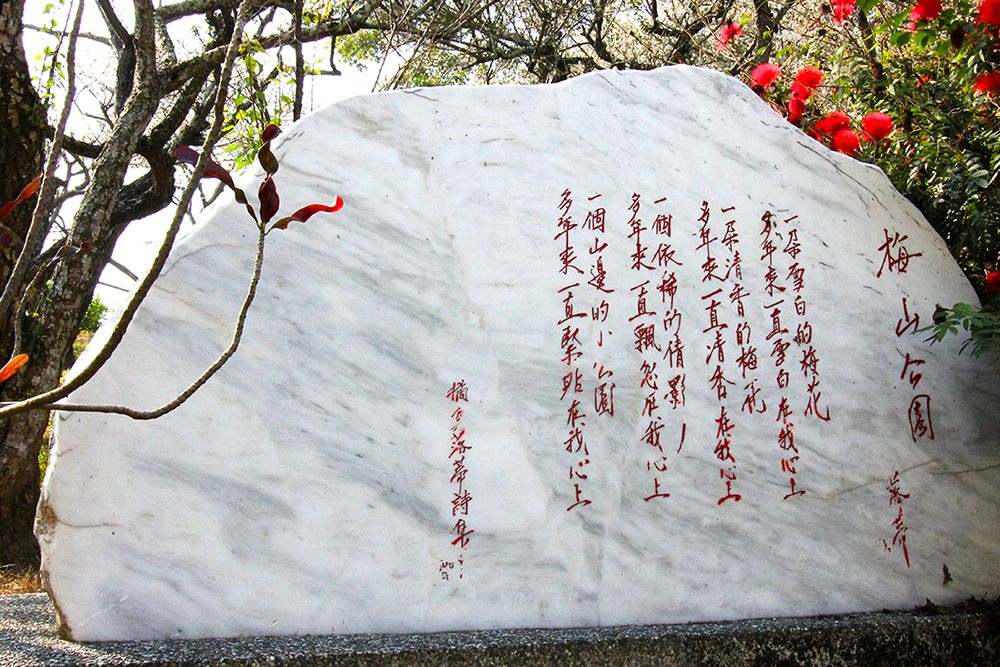 梅山公園
落蒂
一朵雪白的梅花
多年來一直雪白在我心上
一朵清香的梅花
多年來一直清香在我心上
一個依稀的倩影
多年來一直飄忽在我心上
一個山邊的小公園
多年來一直緊貼在我心上
摘自落蒂詩集